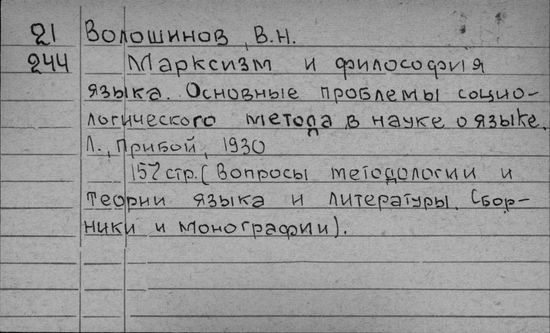 21 Волошинов, В.Н.
244 Марксизм и философия
языка. Основные проблемы социо-
логического метода в науке о языке.
Л., Прибой, 1930
157 стр. (Вопросы методологии и
теории языка и литературы. Сбор-
ники и монографии).